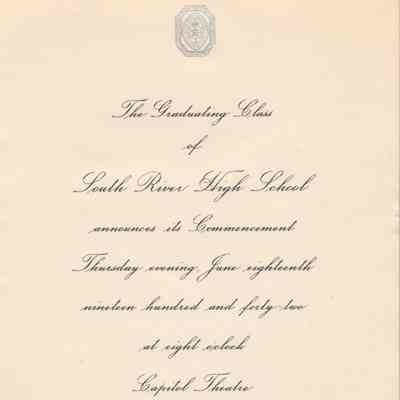 The Graduating Class
of
South River High School
announces its Commencement
Thursday evening, June eighteenth
nineteen hundred and forty two
at eight o'clock
Capitol Theatre